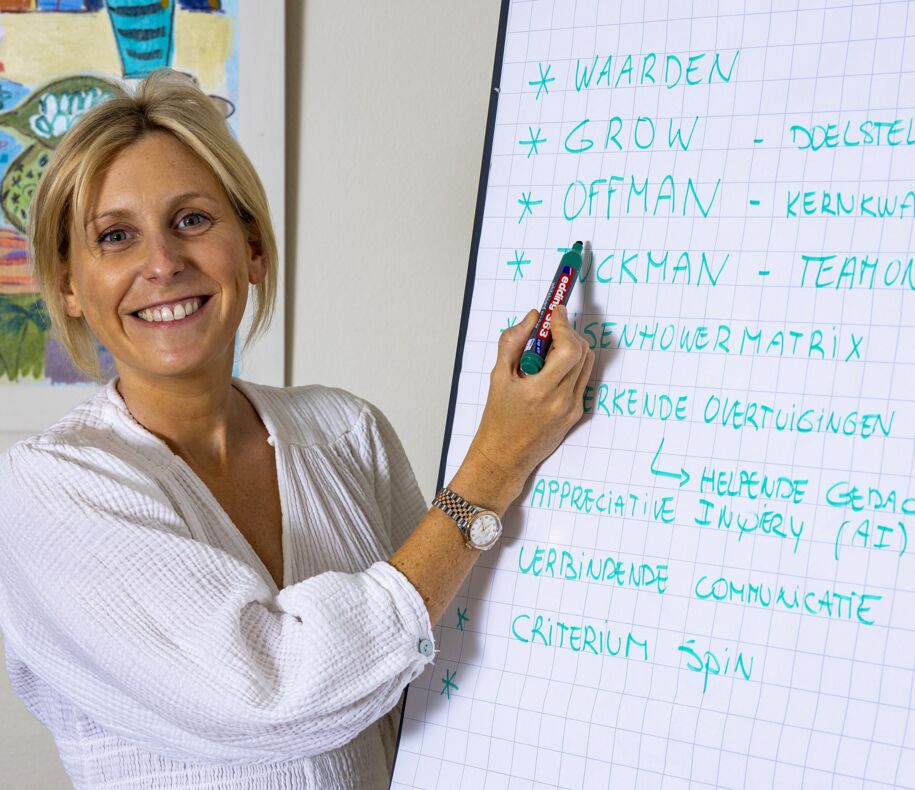 * WAARDEN
* GROW - DOELSTEL
* OFFMAN - KERNKWA
* TUCKMAN - TEAMON
* ISENHOWERMATRIX
ERKENDE OVERTUIGINGEN
↳ HELPENDE GEDAC
APPRECIATIVE INQUERY (AI)
VERBINDENDE COMMUNICATIE
* CRITERIUM SPIN
*
edding 363